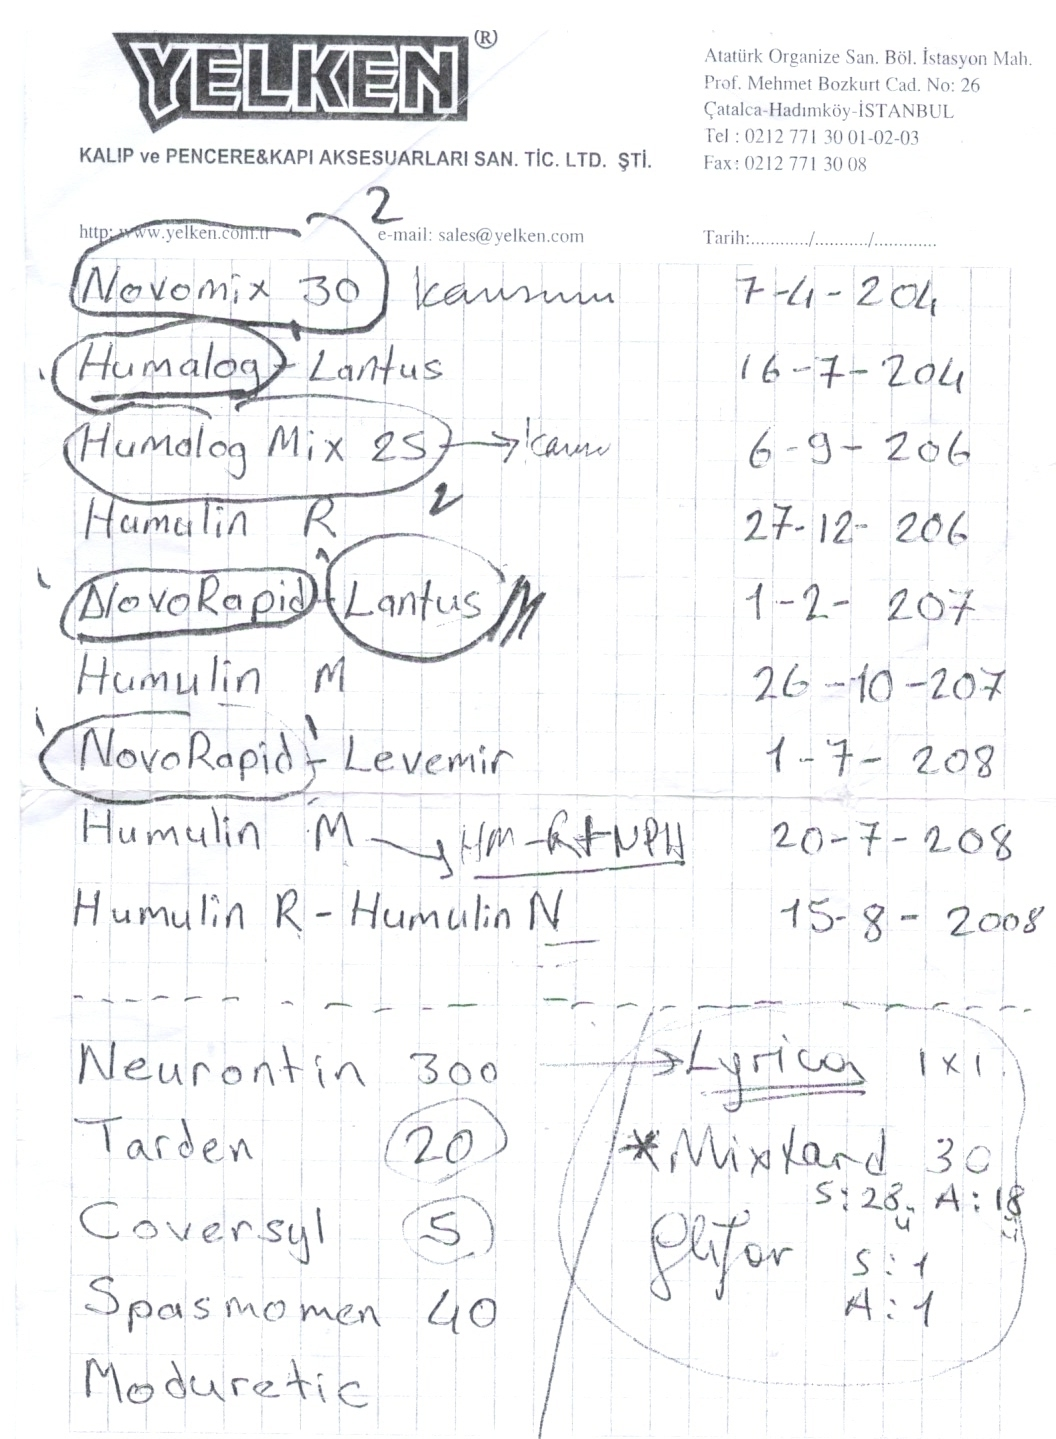 YELKEN (R)
KALIP ve PENCERE&KAPI AKSESUARLARI SAN. TİC. LTD. ŞTİ.
Atatürk Organize San. Böl. İstasyon Mah.
Prof. Mehmet Bozkurt Cad. No: 26
Çatalca-Hadımköy-İSTANBUL
Tel : 0212 771 30 01-02-03
Fax : 0212 771 30 08
2
http: www.yelken.com.tr e-mail: sales@yelken.com Tarih:............/.........../.............
Novomix 30 7-4-204
Humalog - Lantus 16-7-204
Humalog Mix 25 → 6-9-206
2
Humulin R 27-12-206
NovoRapid - Lantus M 1-2-207
Humulin M 26-10-207
NovoRapid - Levemir 1-7-208
Humulin M → HM-R+NPH 20-7-208
Humulin R - Humulin N 15-8-2008
Neurontin 300 → Lyrica 1x1
Tarden 20 * Mixtard 30
S:28 A:18
Coversyl 5 Glifor S:1
A:1
Spasmomen 40
Moduretic